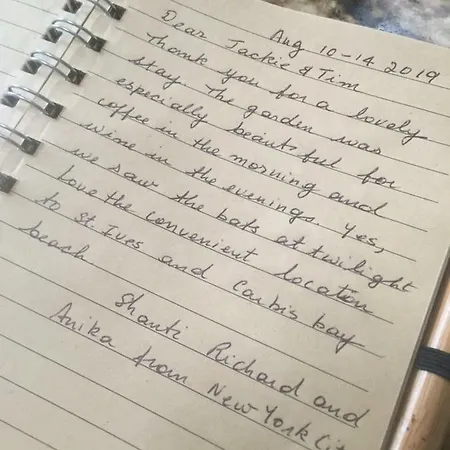 Aug 10-14 2019
Dear Jackie & Tim
Thank you for a lovely
stay The garden was
especially beautiful for
coffee in the morning and
wine in the evenings. Yes,
we saw the bats at twilight
love the convenient location
to St. Ives and Carbis bay
beach
Shanti Richard and
Anika from New York Cit